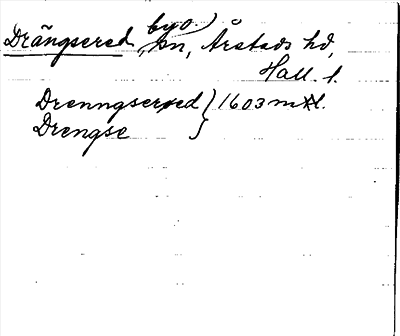 Drängsered, byo. sn, Årstads hd,
Hall. l.
Drenngserød } 1603 mtl.
Drengse